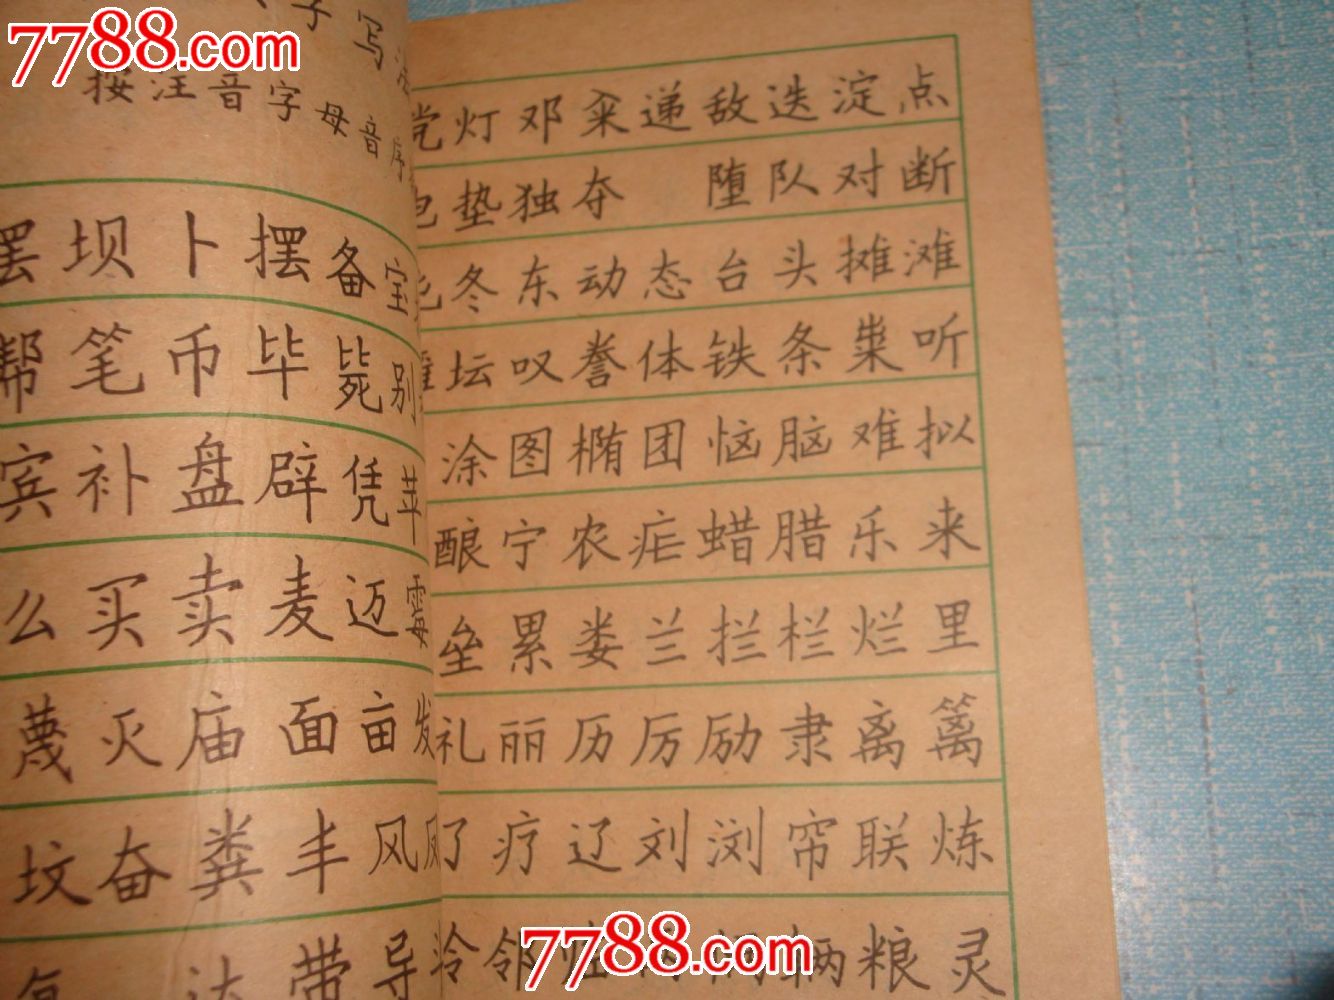 7788.com
7788.com
子写
按注音字母音序
罢坝卜摆备宝
帮笔币毕毙别
宾补盘辟凭苹
么买卖麦迈霉
蔑灭庙面亩发
坟奋粪丰风凤
达带导
党灯邓籴递敌迭淀点
电垫独夺 堕队对断
冬东动态台头摊滩
瘫坛叹誊体铁条粜听
涂图椭团恼脑难拟
酿宁农疟蜡腊乐来
垒累娄兰拦栏烂里
礼丽历厉励隶离篱
了疗辽刘浏帘联炼
邻 辆粮灵
7788.com